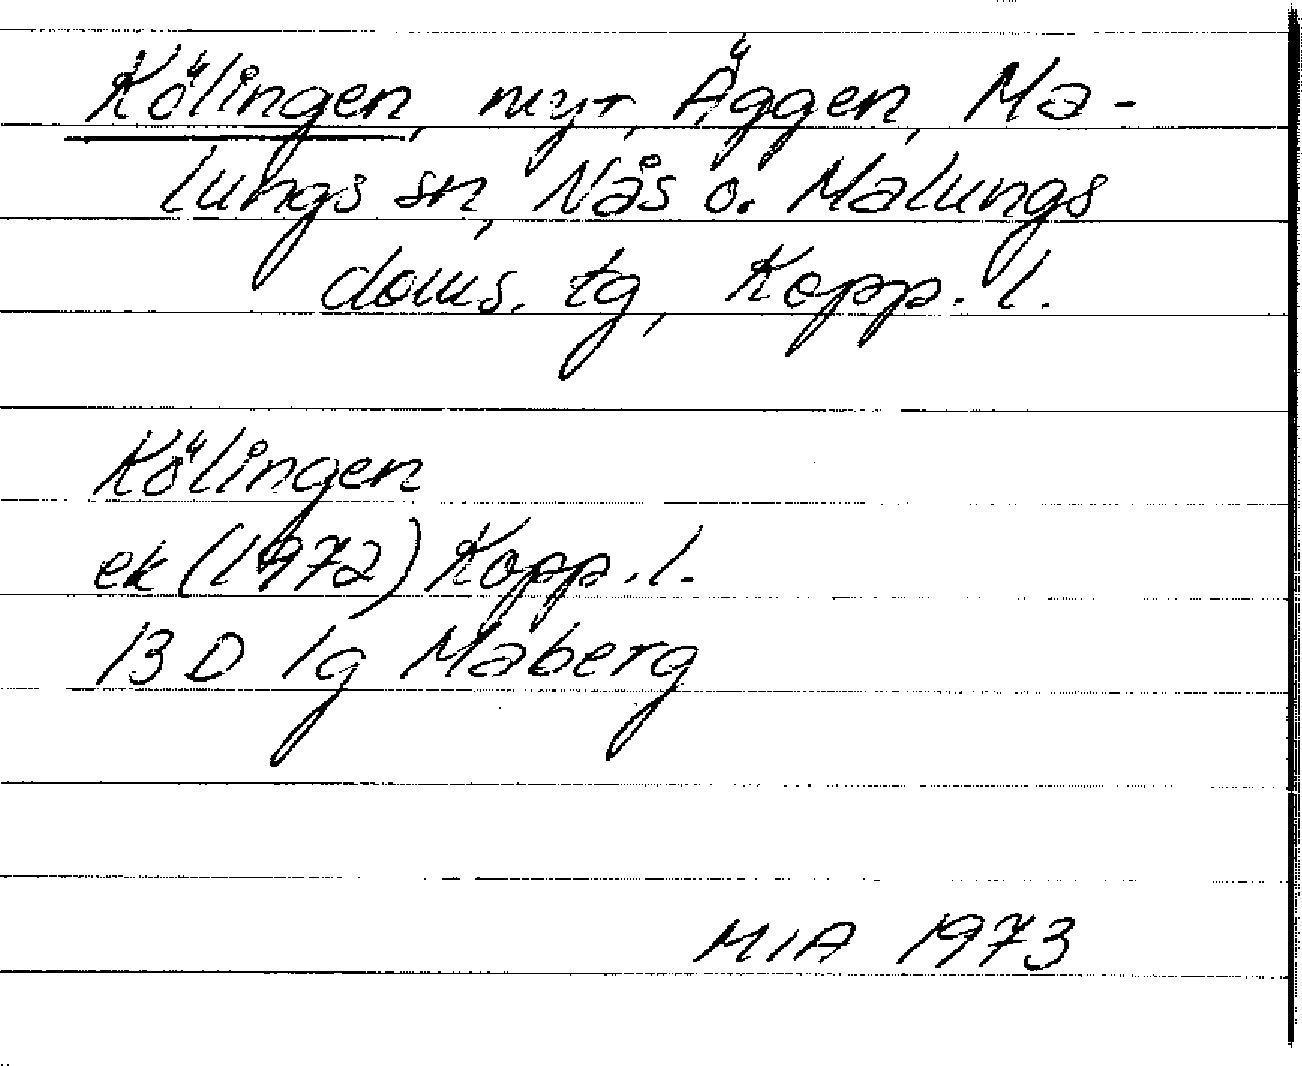 Kölingen, myr, Äggen, Ma-
lungs sn, Nås o. Malungs
doms. tg, Kopp. l.
Kölingen
ek (1972) Kopp. l.
13 D 1g Maberg
MIA 1973